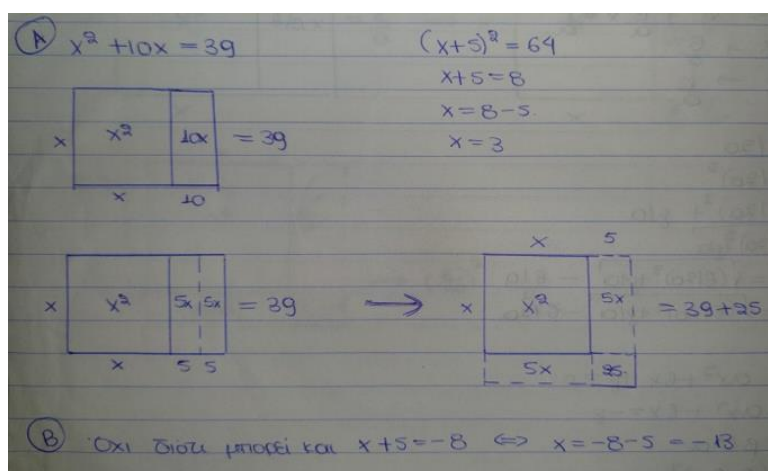 Α x² + 10x = 39
(x+5)² = 64
x+5 = 8
x = 8-5
x = 3
x x² 10x = 39
x 10
x x² 5x 5x = 39
x 5 5
x 5
x x² 5x = 39+25
5x 25
Β Όχι διότι μπορεί και x+5 = -8 ⇔ x = -8-5 = -13